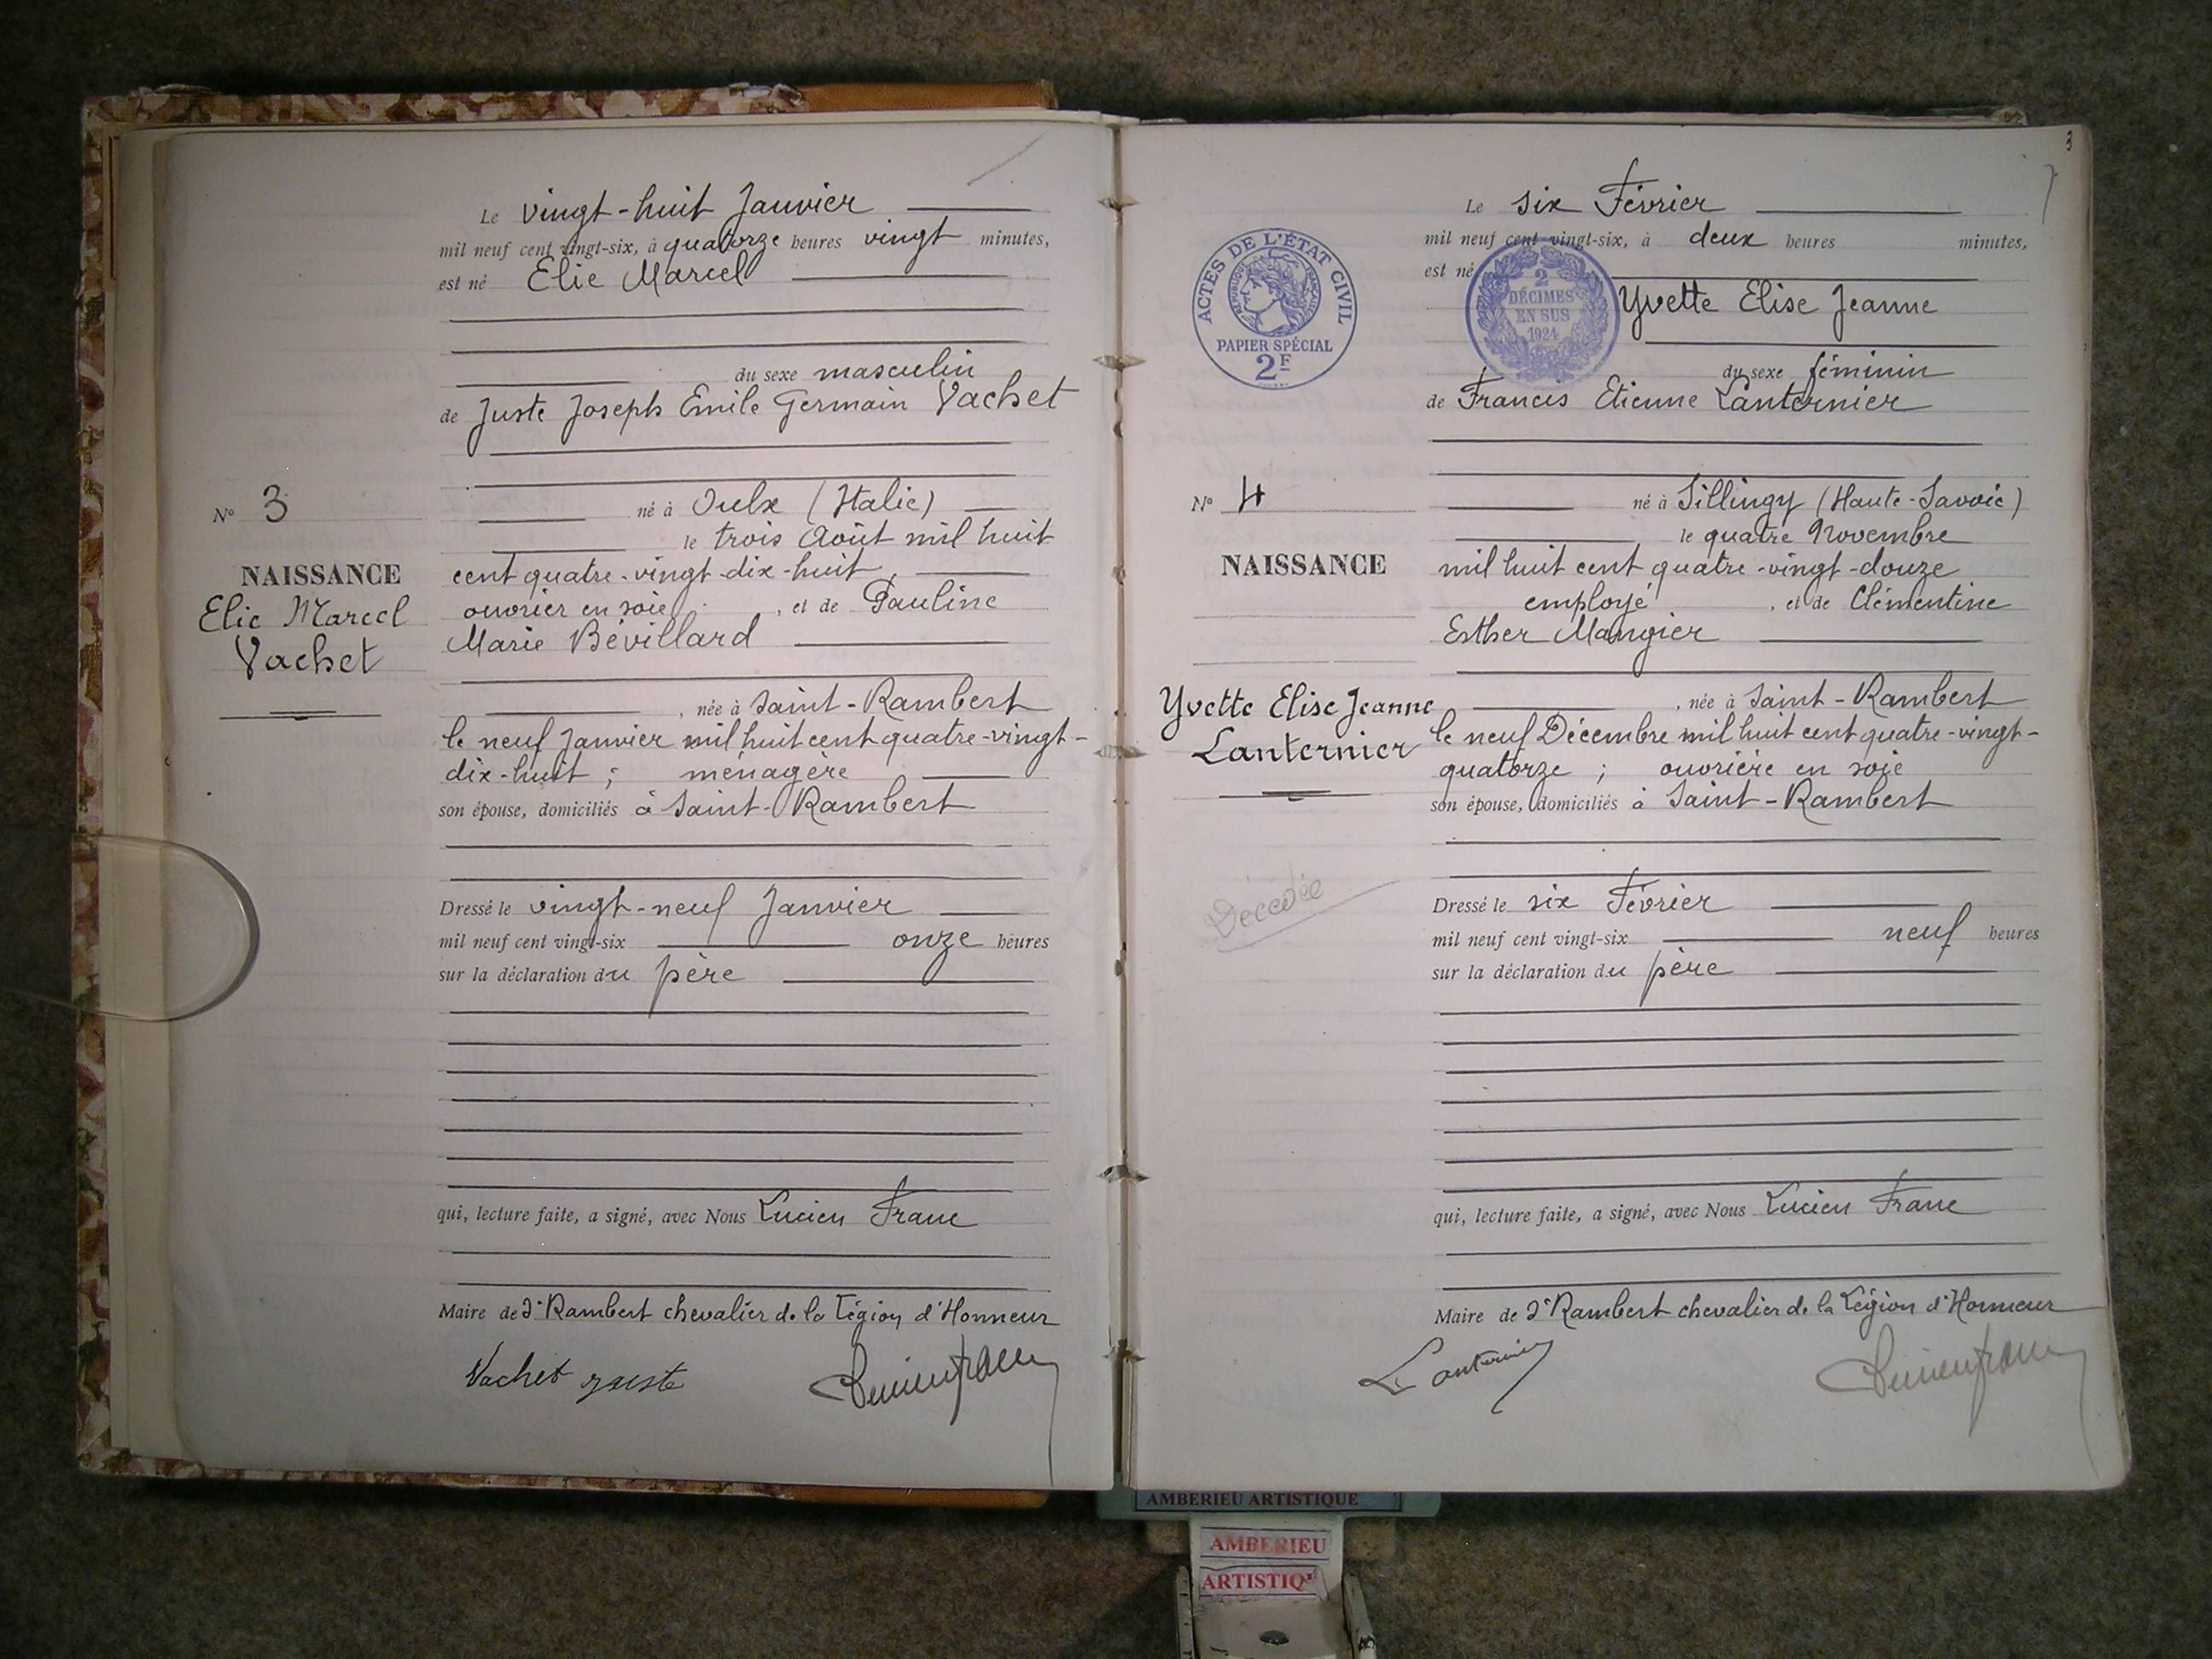 Le vingt-huit Janvier
mil neuf cent vingt-six, à quatorze heures vingt minutes,
est né Elie Marcel
du sexe masculin
de Juste Joseph Emile Germain Vachet
N° 3
né à Oulx (Italie)
le trois Août mil huit
NAISSANCE
cent quatre-vingt-dix-huit,
Elie Marcel
ouvrier en soie, et de Pauline
Vachet
Marie Bévillard
, née à Saint-Rambert
le neuf Janvier mil huit cent quatre-vingt-
dix-huit ; ménagère
son épouse, domiciliés à Saint-Rambert
Dressé le vingt-neuf Janvier
mil neuf cent vingt-six onze heures
sur la déclaration du père
qui, lecture faite, a signé, avec Nous Lucien Franc
Maire de St Rambert chevalier de la Légion d'Honneur
Vachet Juste
Lucien Franc
3
Le six Février
mil neuf cent vingt-six, à deux heures minutes,
est né
Yvette Elise Jeanne
ACTES DE L'ÉTAT CIVIL
RÉPUBLIQUE FRANÇAISE
PAPIER SPÉCIAL
2F
2
DÉCIMES
EN SUS
1924
du sexe féminin
de Francis Etienne Lanternier
N° 4
né à Sillingy (Haute-Savoie)
le quatre Novembre
NAISSANCE
mil huit cent quatre-vingt-douze
employé, et de Clémentine
Esther Mangier
Yvette Elise Jeanne
Lanternier
, née à Saint-Rambert
le neuf Décembre mil huit cent quatre-vingt-
quatorze ; ouvrière en soie
son épouse, domiciliés à Saint-Rambert
Décédée
Dressé le six Février
mil neuf cent vingt-six neuf heures
sur la déclaration du père
qui, lecture faite, a signé, avec Nous Lucien Franc
Maire de St Rambert chevalier de la Légion d'Honneur
Lanternier
Lucien Franc
AMBERIEU ARTISTIQUE
AMBERIEU
ARTISTIQ